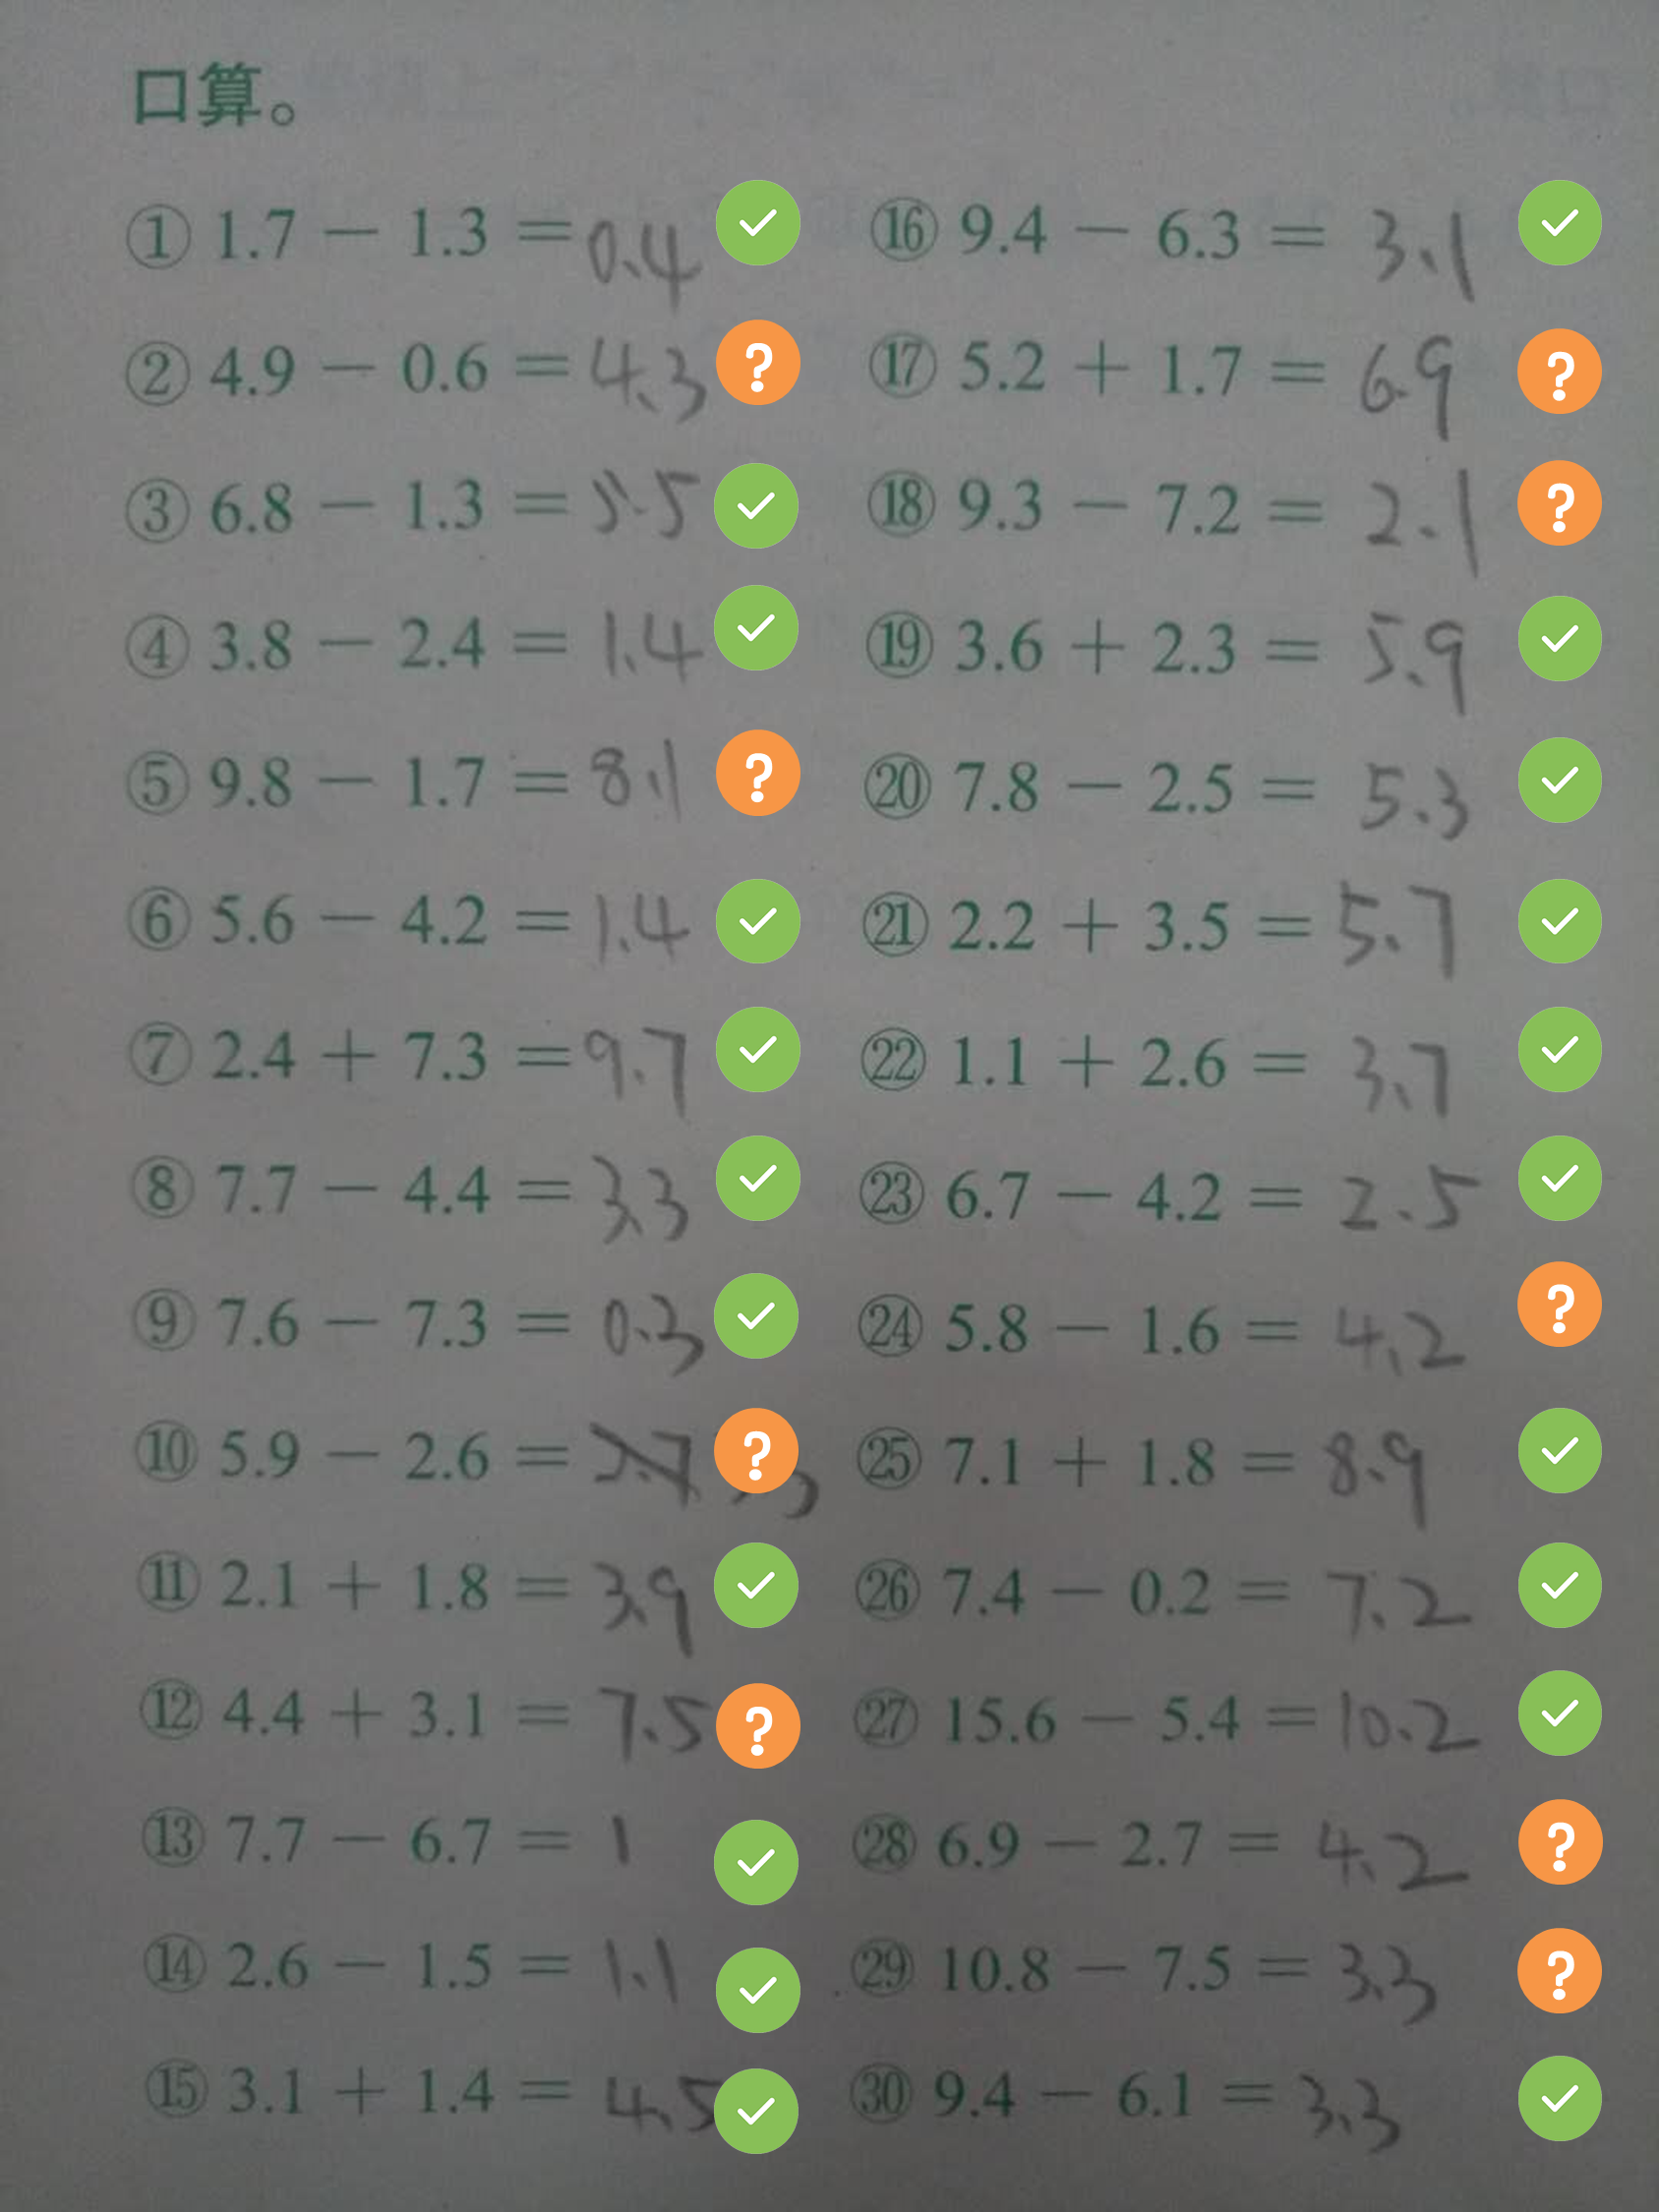 口算。
① 1.7 − 1.3 = 0.4
② 4.9 − 0.6 = 4.3
③ 6.8 − 1.3 = 5.5
④ 3.8 − 2.4 = 1.4
⑤ 9.8 − 1.7 = 8.1
⑥ 5.6 − 4.2 = 1.4
⑦ 2.4 + 7.3 = 9.7
⑧ 7.7 − 4.4 = 3.3
⑨ 7.6 − 7.3 = 0.3
⑩ 5.9 − 2.6 =
⑪ 2.1 + 1.8 = 3.9
⑫ 4.4 + 3.1 = 7.5
⑬ 7.7 − 6.7 = 1
⑭ 2.6 − 1.5 = 1.1
⑮ 3.1 + 1.4 = 4.5
⑯ 9.4 − 6.3 = 3.1
⑰ 5.2 + 1.7 = 6.9
⑱ 9.3 − 7.2 = 2.1
⑲ 3.6 + 2.3 = 5.9
⑳ 7.8 − 2.5 = 5.3
㉑ 2.2 + 3.5 = 5.7
㉒ 1.1 + 2.6 = 3.7
㉓ 6.7 − 4.2 = 2.5
㉔ 5.8 − 1.6 = 4.2
㉕ 7.1 + 1.8 = 8.9
㉖ 7.4 − 0.2 = 7.2
㉗ 15.6 − 5.4 = 10.2
㉘ 6.9 − 2.7 = 4.2
㉙ 10.8 − 7.5 = 3.3
㉚ 9.4 − 6.1 = 3.3